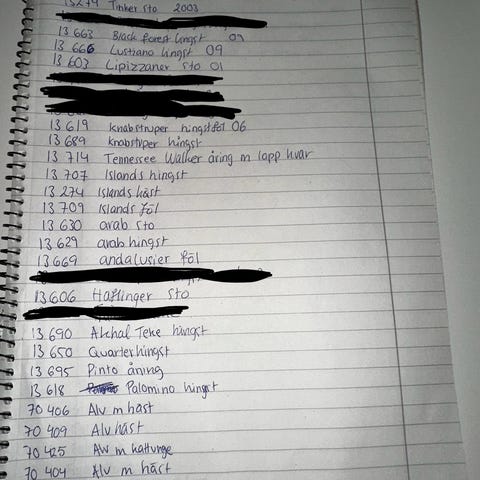 13274 Tinker sto 2003
13 663 Black forest hingst 09
13 666 Lusitano hingst 09
13 603 Lipizzaner sto 01
13 619 knabstruper hingstföl 06
13 689 knabstruper hingst
13 714 Tennessee Walker åring m lapp kvar
13 707 Islands hingst
13 274 Islands häst
13 709 Islands föl
13 630 arab sto
13 629 arab hingst
13 669 andalusier föl
13 606 Haflinger sto
13 690 Akhal Teke hingst
13 650 Quarter hingst
13 695 Pinto åring
13 618 Palomino hingst
70 406 Alv m häst
70 409 Alv häst
70 425 Alv m kattunge
70 404 Alv m häst